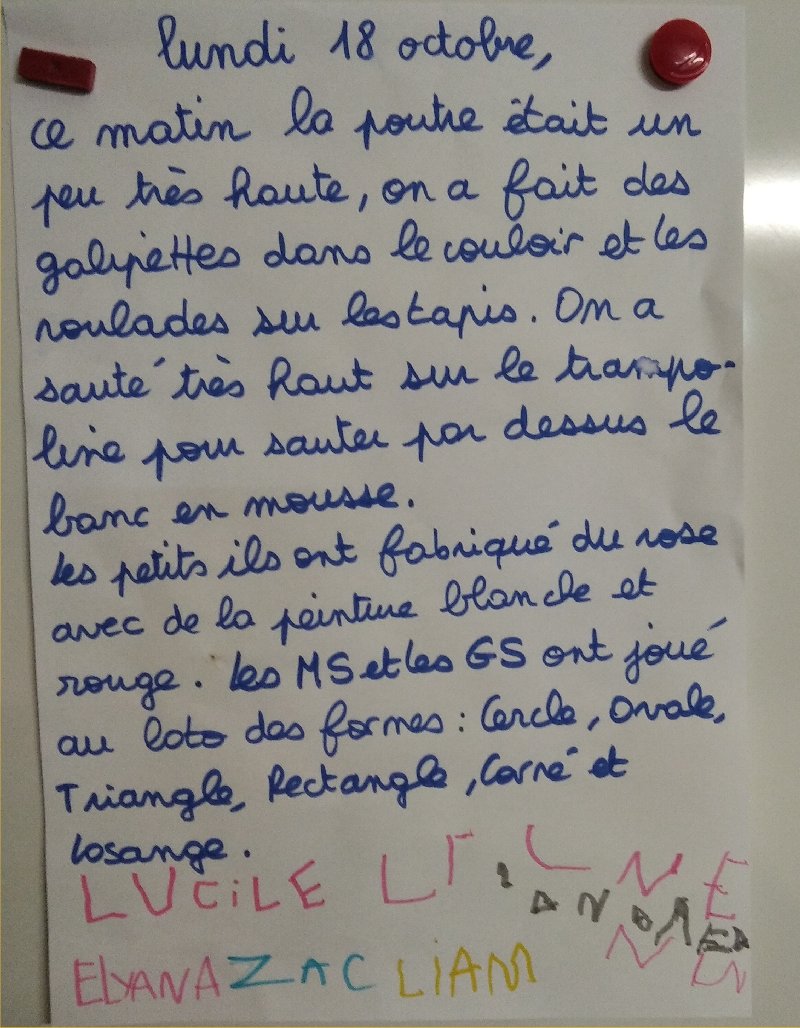 lundi 18 octobre,
ce matin la poutre était un
peu très haute, on a fait des
galipettes dans le couloir et les
roulades sur les tapis. On a
sauté très haut sur le trampo-
line pour sauter par dessus le
banc en mousse.
les petits ils ont fabriqué du rose
avec de la peinture blanche et
rouge. les MS et les GS ont joué
au loto des formes : Cercle, Ovale,
Triangle, Rectangle, Carré et
losange.
LUCiLE
ELYANA ZAC LiAM